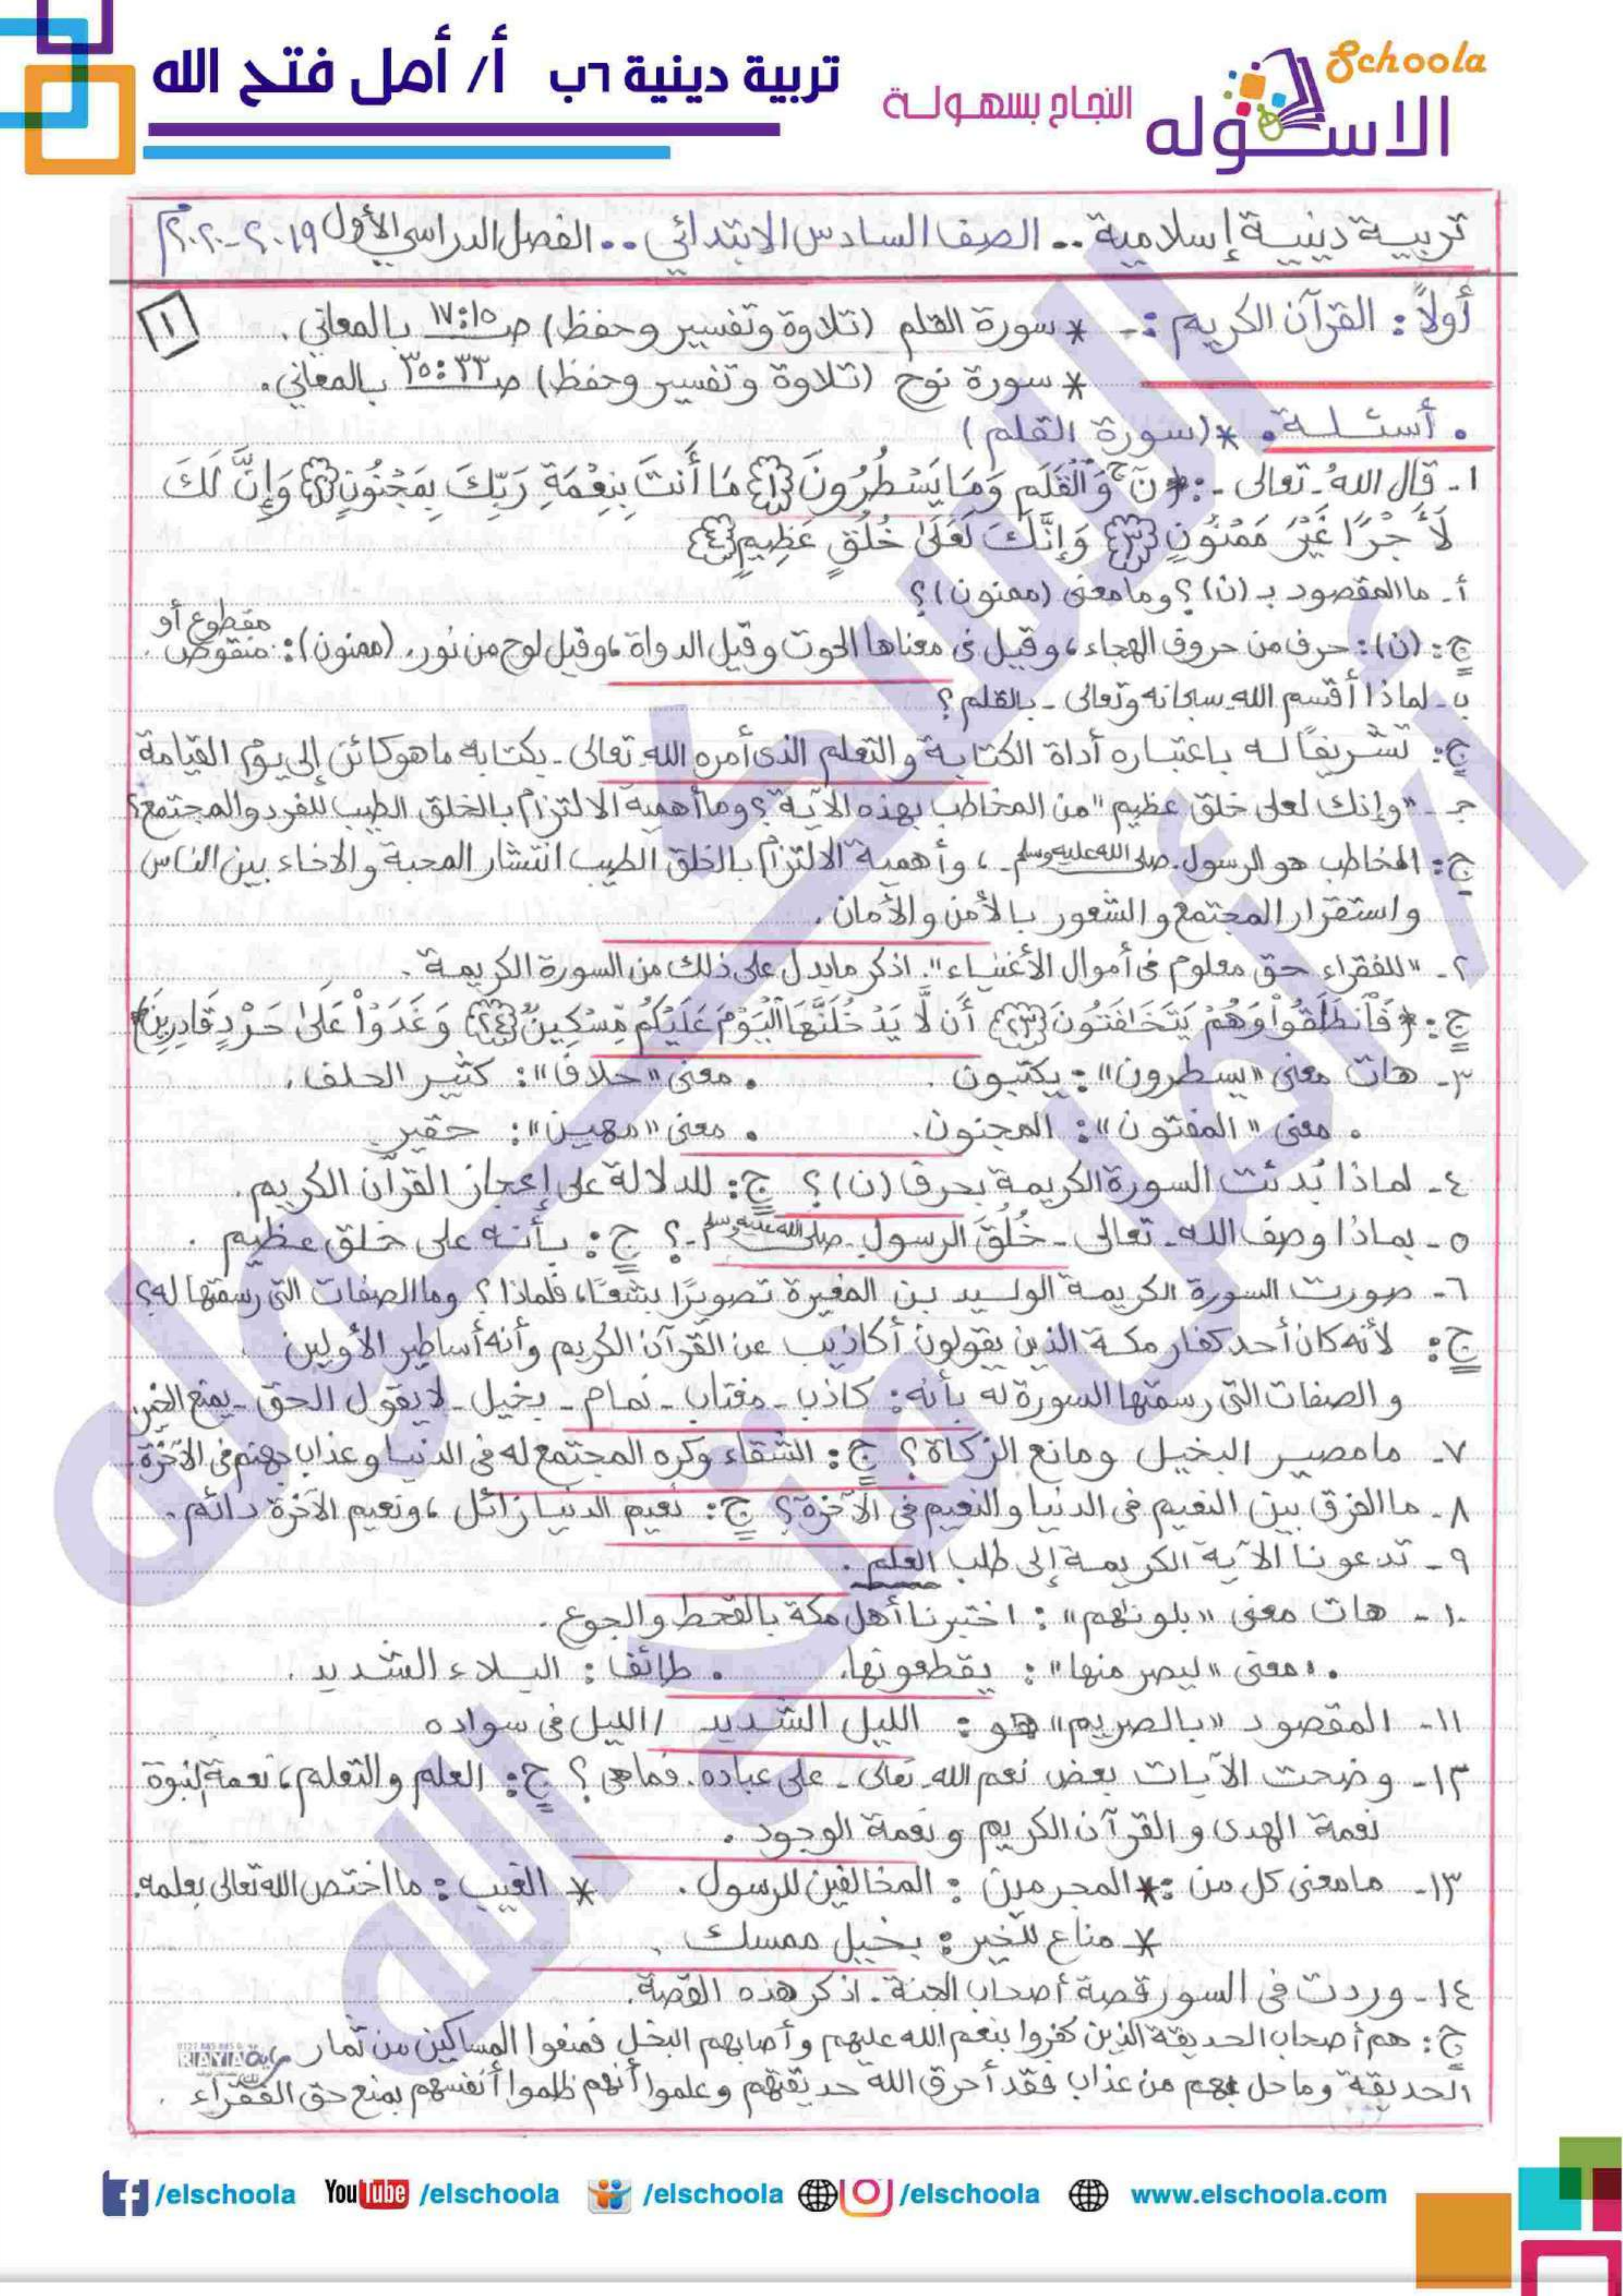 Schoola
الاسكوله
النجاح بسهولة
تربية دينية ٦ب أ/ أمل فتح الله
تربية دينية إسلامية .. الصف السادس الابتدائي .. الفصل الدراسي الأول ٢٠١٩-٢٠٢٠م
أولاً: القرآن الكريم :- * سورة القلم (تلاوة وتفسير وحفظ) ص ١٥:١٧ بالمعاني.
١
* سورة نوح (تلاوة وتفسير وحفظ) ص ٣٣:٣٥ بالمعاني.
. أسئلة . * (سورة القلم)
١- قال الله - تعالى - : ﴿نٓ وَالْقَلَمِ وَمَا يَسْطُرُونَ {١} مَا أَنتَ بِنِعْمَةِ رَبِّكَ بِمَجْنُونٍ {٢} وَإِنَّ لَكَ
لَأَجْرًا غَيْرَ مَمْنُونٍ {٣} وَإِنَّكَ لَعَلَىٰ خُلُقٍ عَظِيمٍ {٤}
أ- ما المقصود بـ (ن)؟ وما معنى (ممنون)؟
ج: (ن): حرف من حروف الهجاء، وقيل في معناها الحوت وقيل الدواة، وقيل لوح من نور. (ممنون): مقطوع أو منقوص.
ب- لماذا أقسم الله سبحانه وتعالى - بالقلم؟
ج: تشريفًا له باعتباره أداة الكتابة والتعلم الذي أمره الله تعالى - بكتابة ما هو كائن إلى يوم القيامة
جـ - "وإنك لعلى خلق عظيم" من المخاطب بهذه الآية؟ وما أهمية الالتزام بالخلق الطيب للفرد والمجتمع؟
ج: المخاطب هو الرسول - صلى الله عليه وسلم - ، وأهمية الالتزام بالخلق الطيب انتشار المحبة والاخاء بين الناس
واستقرار المجتمع والشعور بالأمن والأمان.
٢- "للفقراء حق معلوم في أموال الأغنياء". اذكر ما يدل على ذلك من السورة الكريمة.
ج: ﴿فَانطَلَقُوا وَهُمْ يَتَخَافَتُونَ {٢٣} أَن لَّا يَدْخُلَنَّهَا الْيَوْمَ عَلَيْكُم مِّسْكِينٌ {٢٤} وَغَدَوْا عَلَىٰ حَرْدٍ قَادِرِينَ﴾
٣- هات معنى "يسطرون": يكتبون. . معنى "حلاف": كثير الحلف.
. معنى "المفتون": المجنون. . معنى "مهين": حقير
٤- لماذا بُدئت السورة الكريمة بحرف (ن)؟ ج: للدلالة على إعجاز القرآن الكريم.
٥- بماذا وصف الله - تعالى - خُلُق الرسول - صلى الله عليه وسلم -؟ ج: بأنه على خلق عظيم.
٦- صورت السورة الكريمة الوليد بن المغيرة تصويرًا بشعًا، فلماذا؟ وما الصفات التي رسمتها له؟
ج: لأنه كان أحد كفار مكة الذين يقولون أكاذيب عن القرآن الكريم وأنه أساطير الأولين.
والصفات التي رسمتها السورة له بأنه: كاذب - مغتاب - نمام - بخيل - لا يقول الحق - يمنع الخير.
٧- ما مصير البخيل ومانع الزكاة؟ ج: الشقاء وكره المجتمع له في الدنيا وعذاب جهنم في الآخرة.
٨- ما الفرق بين النعيم في الدنيا والنعيم في الآخرة؟ ج: نعيم الدنيا زائل، ونعيم الآخرة دائم.
٩- تدعونا الآية الكريمة إلى طلب العلم.
١٠- هات معنى "بلونهم": اختبرنا أهل مكة بالقحط والجوع.
. معنى "ليصرمنها": يقطعونها. . طائف: البلاء الشديد.
١١- المقصود "بالصريم" هو: الليل الشديد / الليل في سواده
١٢- وضحت الآيات بعض نعم الله - تعالى - على عباده. فما هي؟ ج: العلم والتعلم، نعمة النبوة
نعمة الهدى والقرآن الكريم ونعمة الوجود.
١٣- ما معنى كل من: * المجرمين: المخالفين للرسول. * الغيب: ما اختص الله تعالى بعلمه.
* مناع للخير: بخيل ممسك.
١٤- وردت في السور قصة أصحاب الجنة. اذكر هذه القصة.
ج: هم أصحاب الحديقة الذين كفروا بنعم الله عليهم وأصابهم البخل فمنعوا المساكين من ثمار
الحديقة وما حل بهم من عذاب فقد أحرق الله حديقتهم وعلموا أنهم ظلموا أنفسهم بمنع حق الفقراء.
RAYA
الاسكوله
أ/ أمل فتح الله
/elschoola YouTube /elschoola /elschoola /elschoola www.elschoola.com